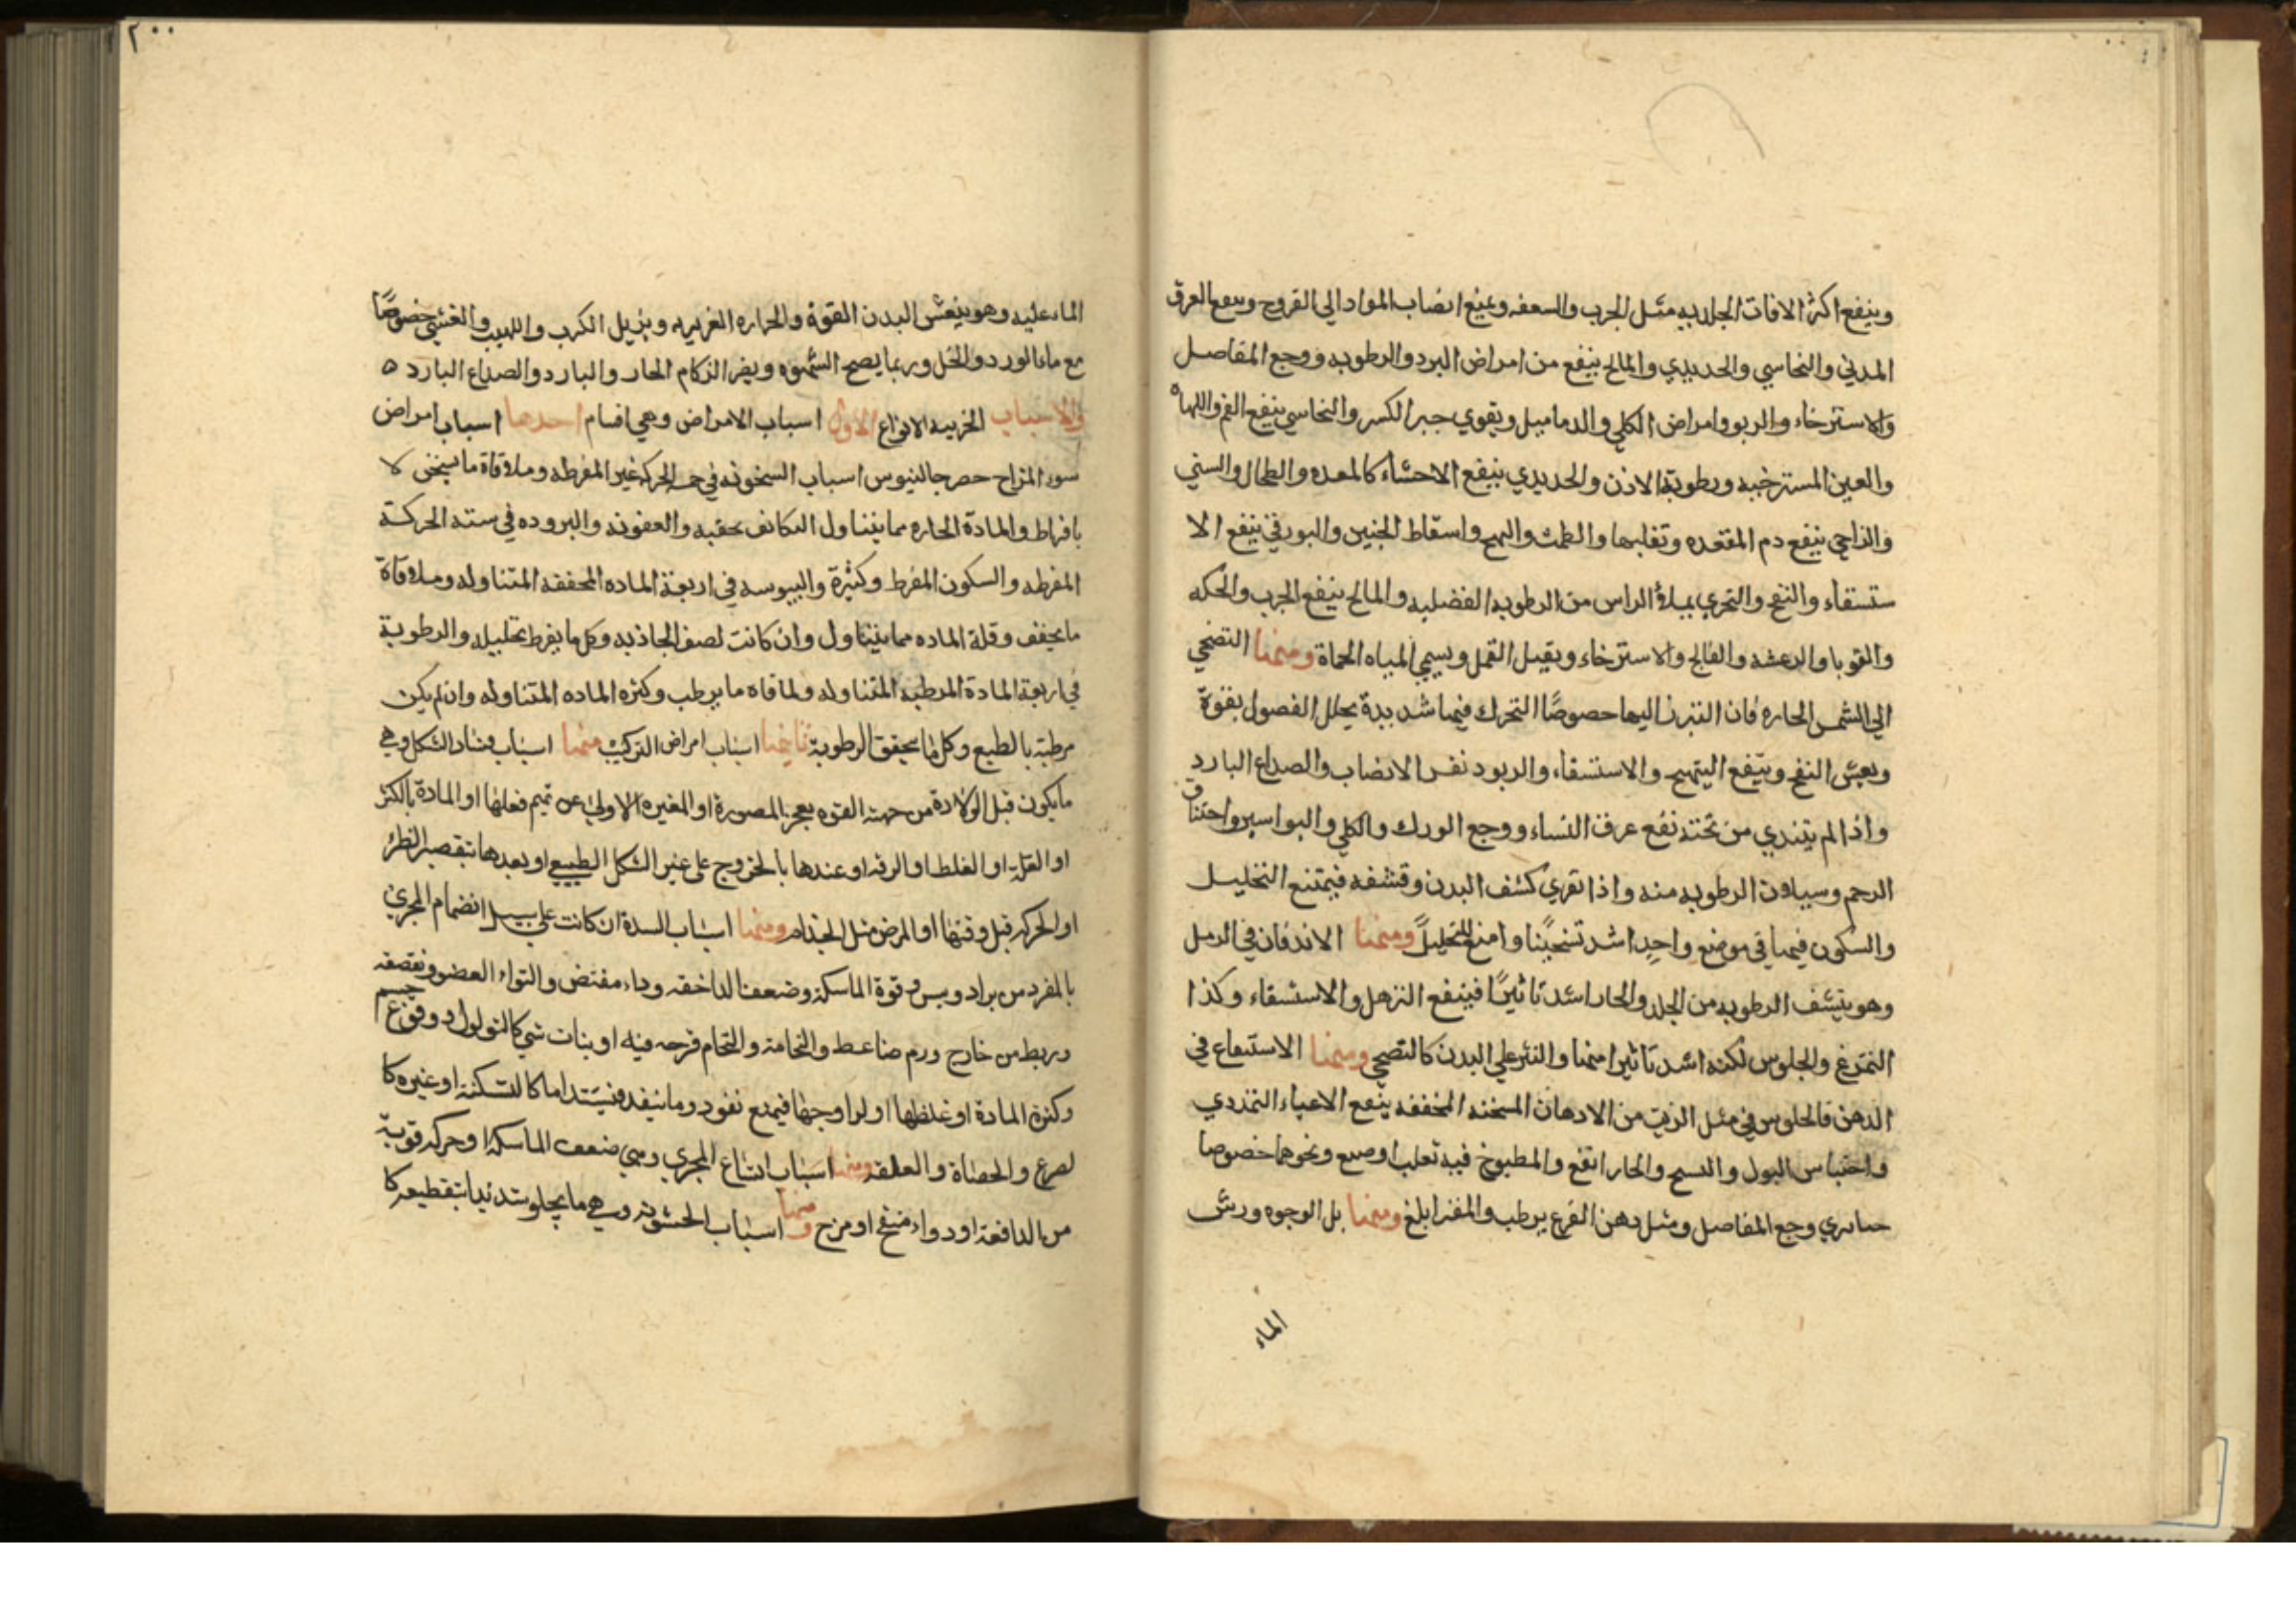 وينفع اكثر الافات الجلديه مثل الجرب والسعفه ويمنع انصاب المواد الي القروح وينفع العرق
المدني والنحاسي والحديدي والمالح ينفع من امراض البرد والرطوبه ووجع المفاصل
والاسترخاء والربو وامراض الكلي والدماميل ويقوي جبر الكسر والنحاسي ينفع الفم واللهاه
والعين المسترخيه ورطوبة الاذن والحديدي ينفع الاحشاء كالمعده والطحال والسني
والزاجي ينفع دم المقعده وتقلبها والطمث والتهيج واسقاط الجنين والبورقي ينفع الا
ستسقاء والنفخ والتحري بملأ الراس من الرطوبه الفضليه والمالح ينفع الجرب والحكه
والقوبا والرعشه والفالج والاسترخاء ويقبل القمل ويسمي المياه الحماة ومنها التضحي
الي الشمس الحاره فان التبرز اليها حصوصًا التحرك فيها شديدة يحلل الفصول بقوة
ويعش النفخ وينفع التهيج والاستسقاء والربو د نفر الانصاب والصداع البارد
واذا لم يتندي من تحته نفع عرق النساء ووجع الورك والكلي والبواسير واحتناق
الرحم وسيلان الرطوبه منه واذا تعري كشف البدن وقشفه فيمتنع التحليل
والسكون فيها في موضع واحد اشد تسخينًا وامنع للتحليل ومنها الاندفان في الرمل
وهو ينشف الرطوبه من الجلد والحار اشد تاثيرًا فينفع الترهل والاستسقاء وكذا
التمرغ والجلوس لكنه اشد تاثيرا منها والنثر علي البدن كالتضحي ومنها الاستنقاع في
الدهن فالجلوس في مثل الزيت من الادهان المسخنه المخففه ينفع الاعياء التمددي
واحتباس البول والتسبح والحار انفع والمطبوخ فيه ثعلب او ضبع ونحوهما خصوصا
حسا يري وجع المفاصل ومثل دهن القرع يرطب والمفتر ابلغ ومنها بل الوجوه ورش
الماء
٢٠٠
الماء عليه وهو ينعش البدن القوة والحراره الغريزيه ويزيل الكرب واللهيب والغشي خصوصًا
مع ماء الورد والخل وربما يصح الشهوه ويضر الزكام الحار والبارد والصداع البارد ه
والاسباب الجزييه الانواع الاول اسباب الامراض وهي اقسام احدها اسباب امراض
سوء المزاج حصر جالينوس اسباب السخونه في خمسه الحركه غير المفرطه وملاقاة ما يسخن لا
بافراط والمادة الحاره مما يتناول التكاثف بحقبه والعفونه والبروده في سته الحركة
المفرطه والسكون المفرط وكثيرة واليبوسه في اربعة الماده المجففه المتناوله وملاقاة
ما يجفف وقلة الماده مما يتناول وان كانت لضعف الجاذبه وكل ما يفرط تحليله والرطوبة
في اربعة المادة المرطبه المتناوله ولملاقاه ما يرطب وكثره الماده المتناوله وان لم يكن
مرطبة بالطبع وكل ما يحقن الرطوبة ثانيها اسباب امراض التركيب منها اسباب فساد الشكل وهي
ما يكون قبل الولادة من جهة القوه بعجز المصورة او المغيره الاولي عن تتميم فعلها او المادة بالكثر
او القلة او الغلط او الرقه او عندها بالخروج علي غير الشكل الطبيعي او بعدها بتقصير الظئر
او الحركه قبل وقتها او المرض مثل الجذام ومنها اسباب السدة ان كانت علي سبيل انضمام المجري
بالمفرد من براد ويبس وقوة الماسكة وضعف الدافعه وداء مفتض والتواء العضو ونقصه
وربط من خارج ورم ضاغط والتحامة والتحام قرحه فيه او بنات شي كالثولول او وقوع جسم
وكثرة المادة او غلظها او لزاوجها فيمنع نفود وما ينفد فيستد اما كالسكتة او غيره كا
لصرع والحصاة والعلقه ومنها اسباب اتساع المجري ومي ضعف الماسكة او حركه قوية
من الدافعة او دواء منفخ او مزح ومنها اسباب الخشونه وهي ما يجلو بشدة يدا بتقطيعه كا